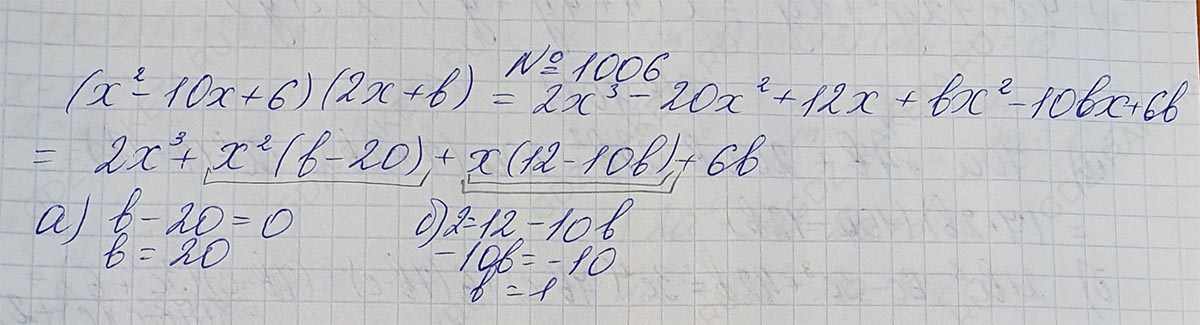 № 1006
(x² - 10x + 6)(2x + b) = 2x³ - 20x² + 12x + bx² - 10bx + 6b
= 2x³ + x²(b - 20) + x(12 - 10b) + 6b
а) b - 20 = 0 б) 2 = 12 - 10b
b = 20 -10b = -10
b = 1